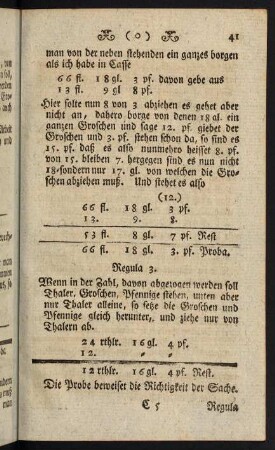 ( o ) 41
man von der neben stehenden ein ganzes borgen
als ich habe in Casse
66 fl. 18 gl. 3 pf. davon gebe aus
13 fl. 9 gl 8 pf.
Hier solte nun 8 von 3 abziehen es gehet aber
nicht an, dahero borge von denen 18 gl. ein
ganzen Groschen und sage 12. pf. giebet der
Groschen und 3. pf. stehen schon da, so sind es
15. pf. daß es also nunmehro heisset 8. pf.
von 15. bleiben 7. hergegen sind es nun nicht
18-sondern nur 17. gl. von welchen die Gro-
schen abziehen muß. Und stehet es also
(12.)
66 fl. 18 gl. 3 pf.
13. 9. 8.
53 fl 8 gl. 7 pf. Rest
66 fl. 18 gl. 3. pf. Proba.
Regula 3.
Wenn in der Zahl, davon abgezogen werden soll
Thaler, Groschen, Pfennige stehen, unten aber
nur Thaler alleine, so setze die Groschen und
Pfennige gleich herunter, und ziehe nur von
Thalern ab.
24 rthlr. 16 gl. 4 pf.
12. " "
12 rthlr. 16 gl. 4 pf. Rest.
Die Probe beweiset die Richtigkeit der Sache.
C 5 Regula